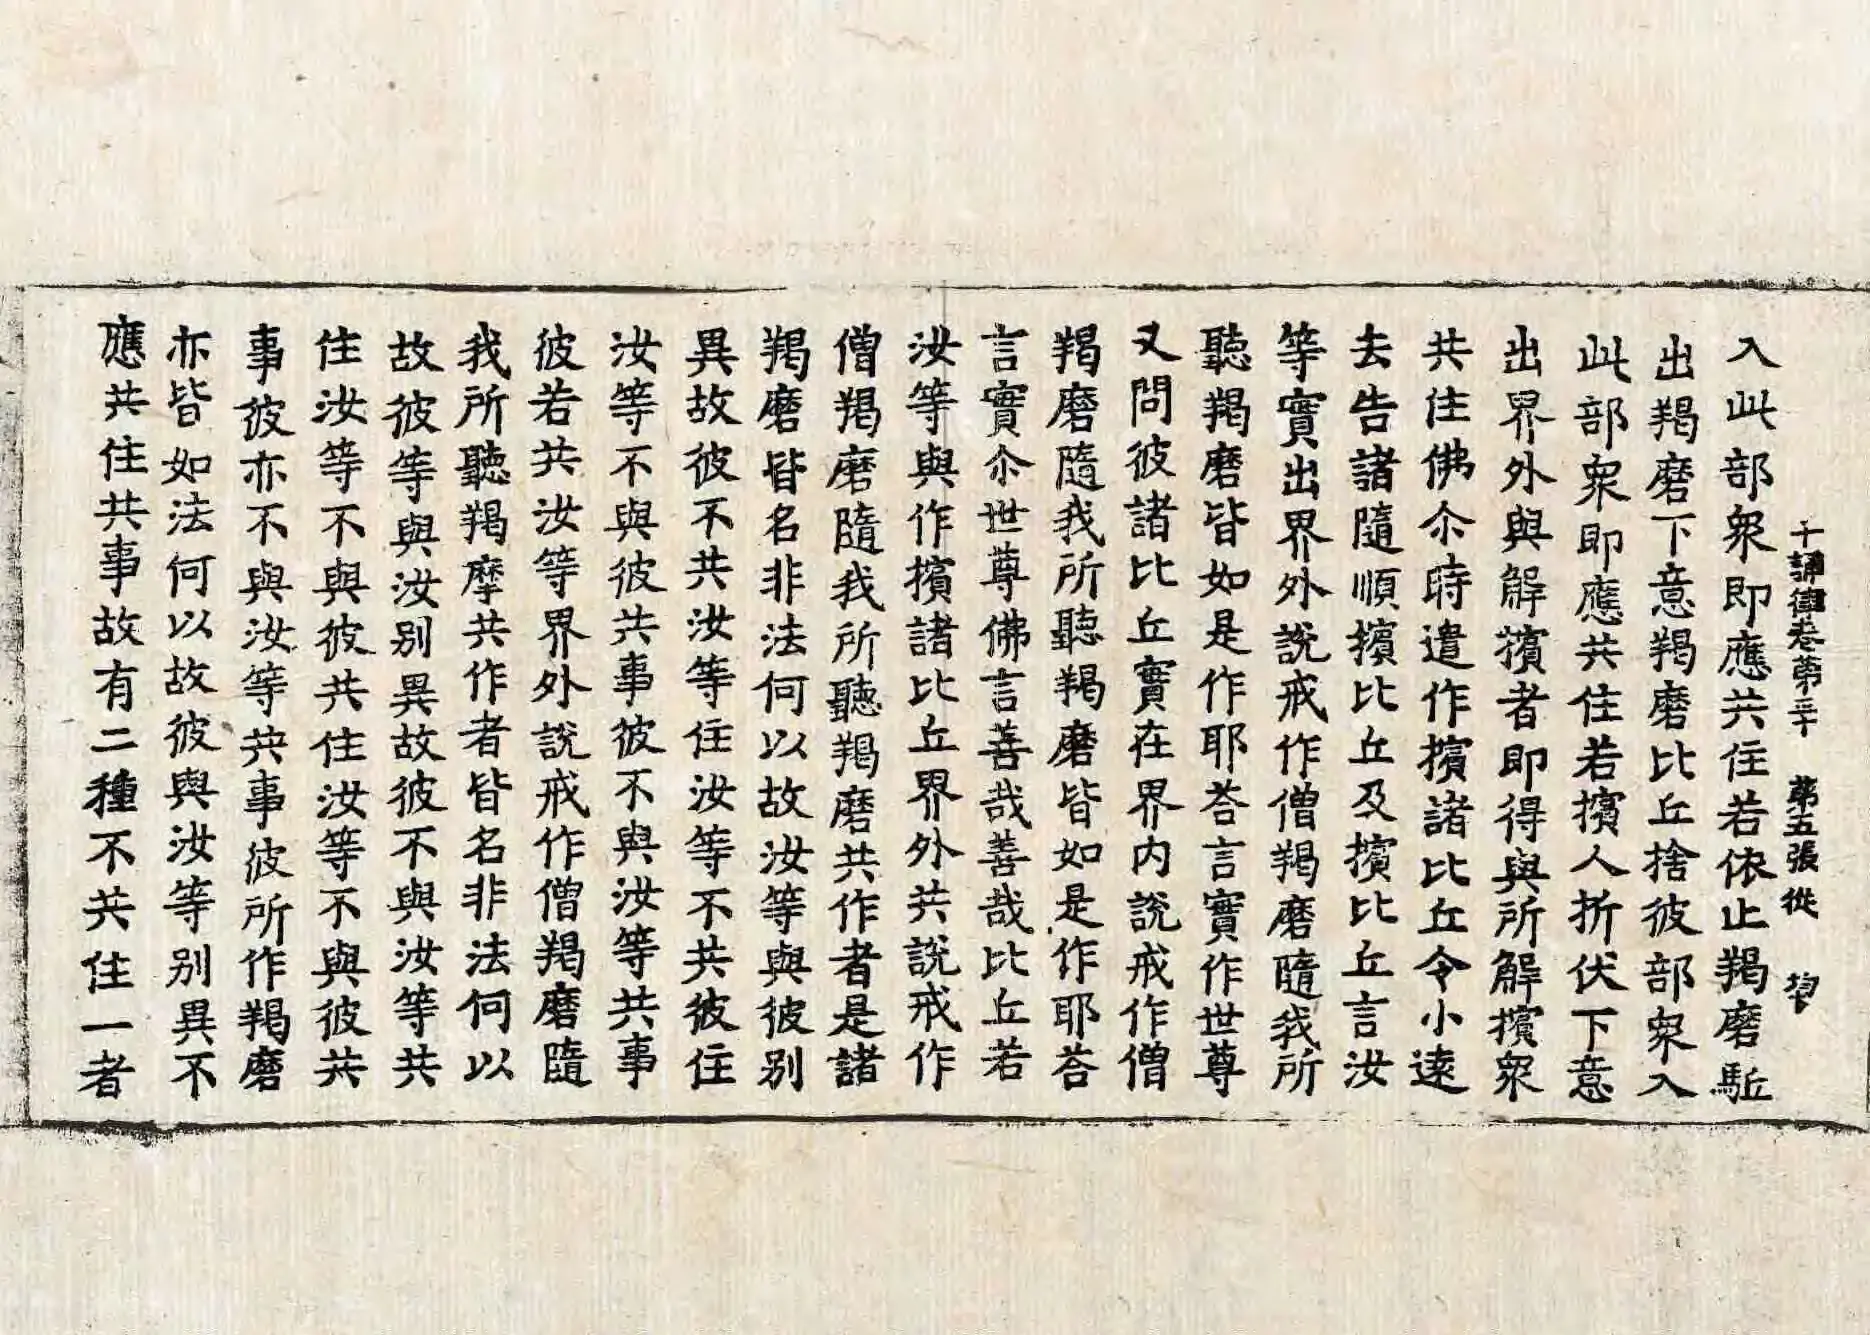 十誦律卷第三十　第五張　從
入此部衆即應共住若依止羯磨駈
出羯磨下意羯磨比丘捨彼部衆入
此部衆即應共住若擯人折伏下意
出界外與解擯者即得與所解擯衆
共住佛尒時遣作擯諸比丘令小遠
去告諸隨順擯比丘及擯比丘言汝
等實出界外說戒作僧羯磨隨我所
聽羯磨皆如是作耶荅言實作世尊
又問彼諸比丘實在界內說戒作僧
羯磨隨我所聽羯磨皆如是作耶荅
言實尒世尊佛言善哉善哉比丘若
汝等與作擯諸比丘界外共說戒作
僧羯磨隨我所聽羯磨共作者是諸
羯磨皆名非法何以故汝等與彼別
異故彼不共汝等住汝等不共彼住
汝等不與彼共事彼不與汝等共事
彼若共汝等界外說戒作僧羯磨隨
我所聽羯摩共作者皆名非法何以
故彼等與汝別異故彼不與汝等共
住汝等不與彼共住汝等不與彼共
事彼亦不與汝等共事彼所作羯磨
亦皆如法何以故彼與汝等別異不
應共住共事故有二種不共住一者